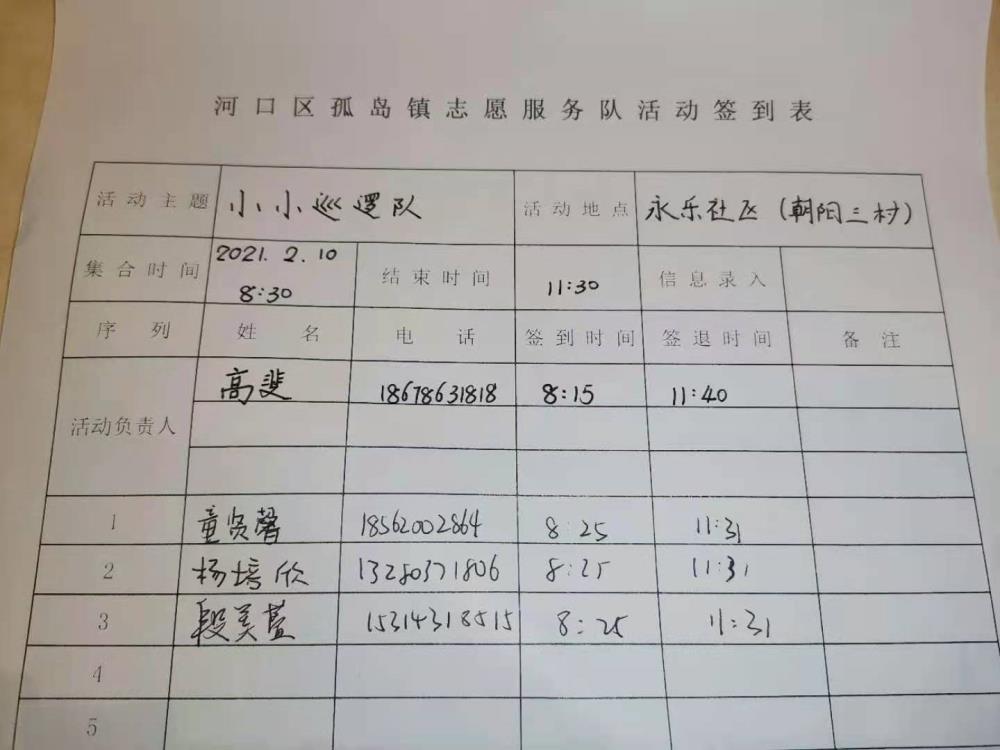 河口区孤岛镇志愿服务队活动签到表
活动主题 小小巡逻队 活动地点 永乐社区(朝阳三村)
集合时间 2021.2.10 8:30 结束时间 11:30 信息录入
序列 姓名 电话 签到时间 签退时间 备注
活动负责人 高斐 18678631818 8:15 11:40
1 童贤馨 18562002864 8:25 11:31
2 杨培欣 13280371806 8:25 11:31
3 段美萱 15314318515 8:25 11:31
4
5